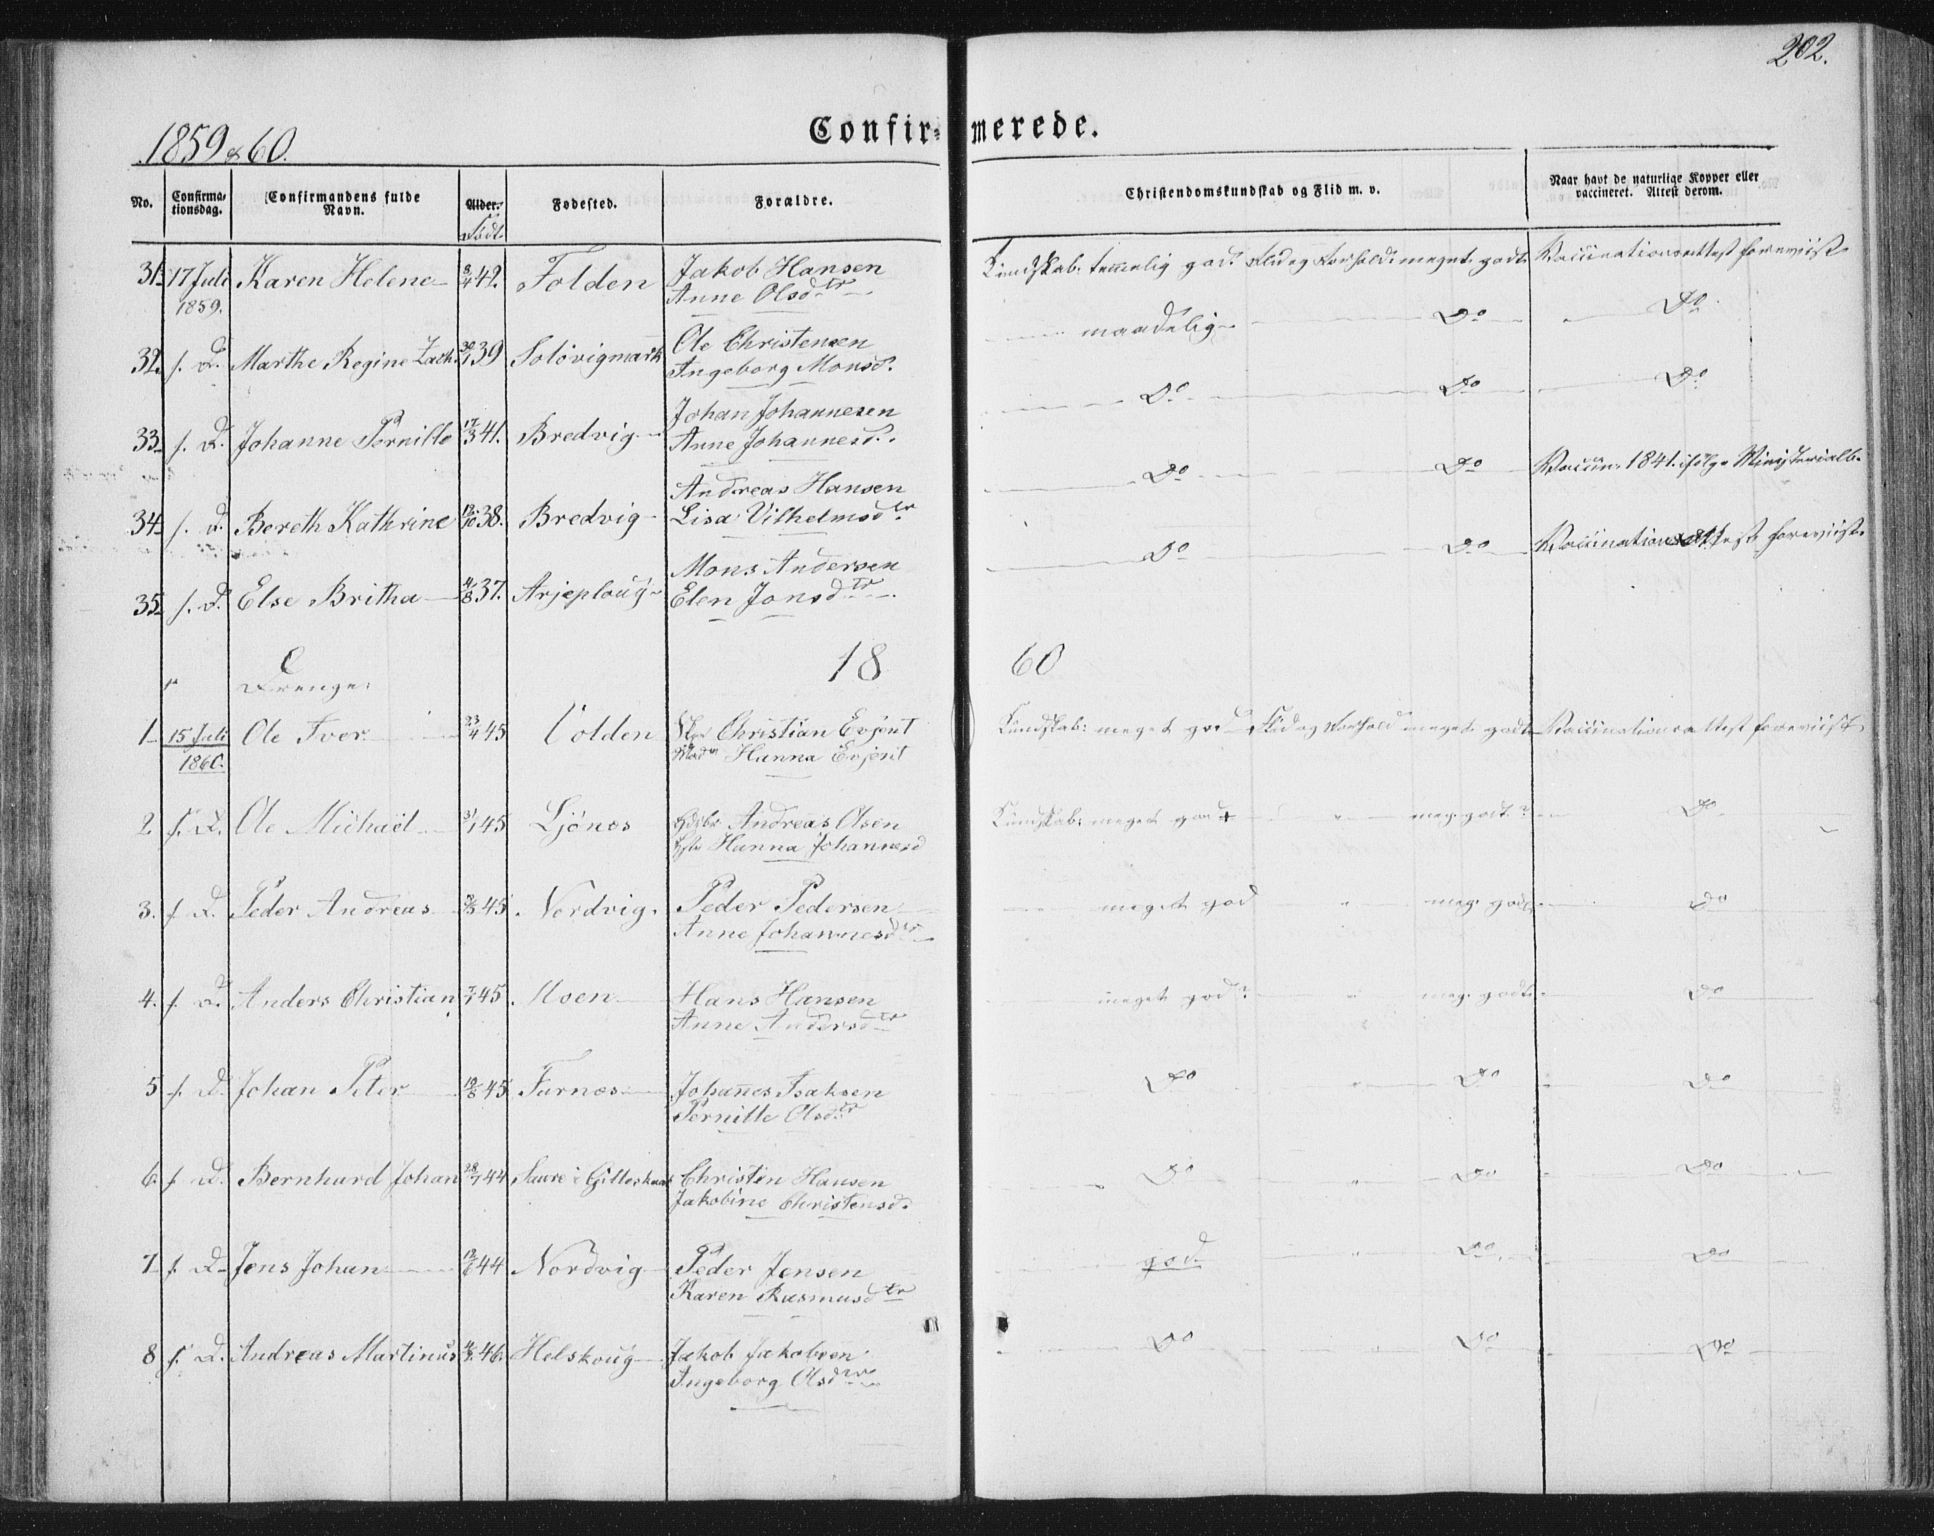 202.
1859 & 60.
Confir= merede.
No. Confirma=tionsdag. Confirmandens fulde Navn. Alder. Födt. Fødested. Forældre. Christendomskundskab og Flid m. v. Naar havt de naturlige Kopper eller vaccineret. Attest derom.
31. 17 Juli 1859. Karen Helene 8/4 42. Folden Jakob Hansen Kundskab: temmelig god. Flid og Forhold: meget godt. Vaccinationsattest foreviist
Anne Olsdtr
32. s. D. Marthe Regine Zach. 30/1 39 Solövigmark Ole Christensen maadelig Do Do
Ingeborg Monsd.
33. s. D. Johanne Pernille 17/3 41. Bredvig Johan Johannesen Do Do Do
Anne Johannesd.
34. s. D. Bereth Kathrine 12/10 38. Bredvig Andreas Hansen Do Do Vaccin. 1841. ifølge Ministerialb.
Lisa Vilhelmsdtr
35. s. D. Else Britha 4/8 37. Arjeploug Mons Andersen Do Do Vaccinationsattest foreviist.
Elen Jonsdtr
18 60
Drenge:
1. 15 Juli 1860. Ole Iver 23/4 45 Volden Christian Evjent Kundskab: meget god Flid og Forhold meget godt Vaccinationsattest foreviist
Hanna Evjent
2. s. D. Ole Michaël 31/1 45 Ljönes Andreas Olsen Kundskab: meget god + " meg. godt? Do
Hanna Johannesd
3. s. D. Peder Andreas 45 Nordvig. Peder Pedersen meget god " meg. godt Do
Anne Johannesdtr
4. s. D. Anders Christian 45. Moen Hans Hansen meget god? " meg. godt Do
Anne Andersdtr
5 s. D. Johan Peter 45 Furnes Johannes Isaksen Do " Do Do
Pernille Olsdtr
6. s. D. Bernhard Johan 28/7 44 Saure i Gilleskaal Christen Hansen Do " Do Do
Jakobine Christensd.
7. s. D. Jens Johan 44 Nordvig Peder Jensen god. " Do Do
Karen Rasmusdtr
8 s. D. Andreas Martinus 46. Helskoug Jakob Jakobsen Do Do Do
Ingeborg Olsdtr